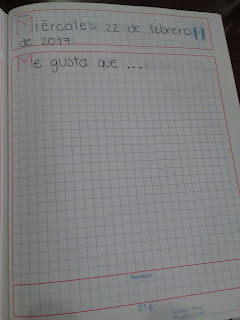 Miércoles 22 de febrero
de 2017
Me gusta que ...
Nombre
016